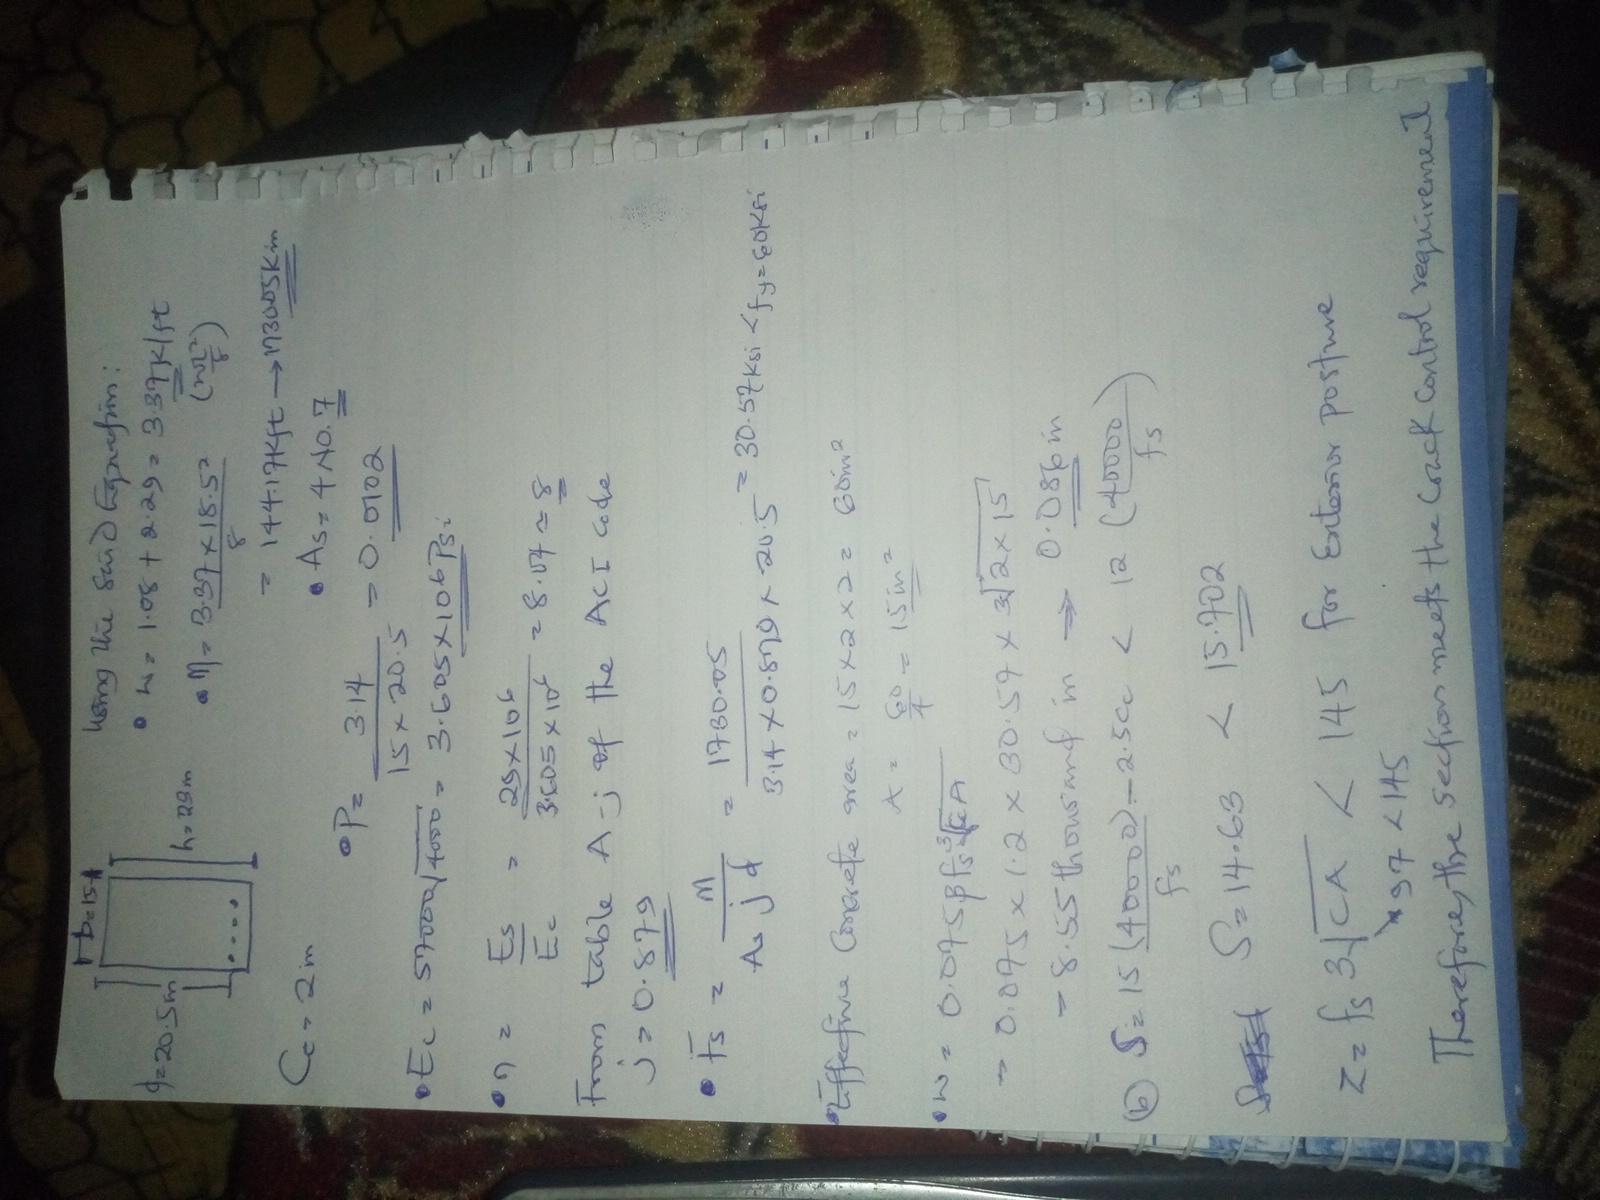 Using the Sin D Equation:
b=15
d=20.5in
h=23in
Cc = 2in
• W = 1.08 + 2.29 = 3.37K/ft
• M = 3.37 × 18.5² / 8 (wL²/8)
= 144.17Kft → 1730.05Kin
• As = 4 NO.7
• P = 3.14 / 15 × 20.5 = 0.0102
• Ec = 57000√4000 = 3.605×10⁶Psi
• n = Es / Ec = 29×10⁶ / 3.605×10⁶ = 8.04 ≈ 8
From table A-j of the ACI code
j = 0.879
• Fs = M / As j d = 1730.05 / 3.14×0.879×20.5 = 30.57Ksi < fy = 60Ksi
• Effective Concrete area = 15×2×2 = 60in²
A = 60/4 = 15in²
• w = 0.075βfs ³√cA
= 0.075×1.2×30.57× 3√2×15
= 8.55 thousand in → 0.086in
(b) S = 15(40000)/fs - 2.5Cc < 12(40000/fs)
S = 14.63 < 15.702
Z = fs 3√CA < 145 for Exterior posture
97 < 145
Therefore, the section meets the Crack Control requirement